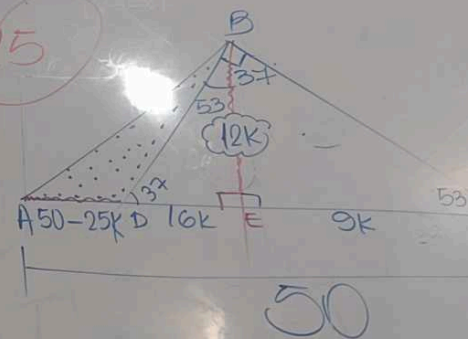 5
B
37
53
12K
37
53
A 50-25K D 16K E 9K
50